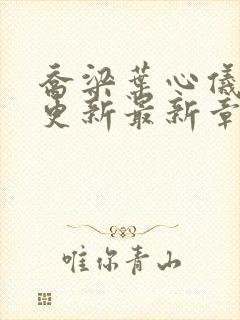 乔梁葉心儀
更新最新章
唯你青山